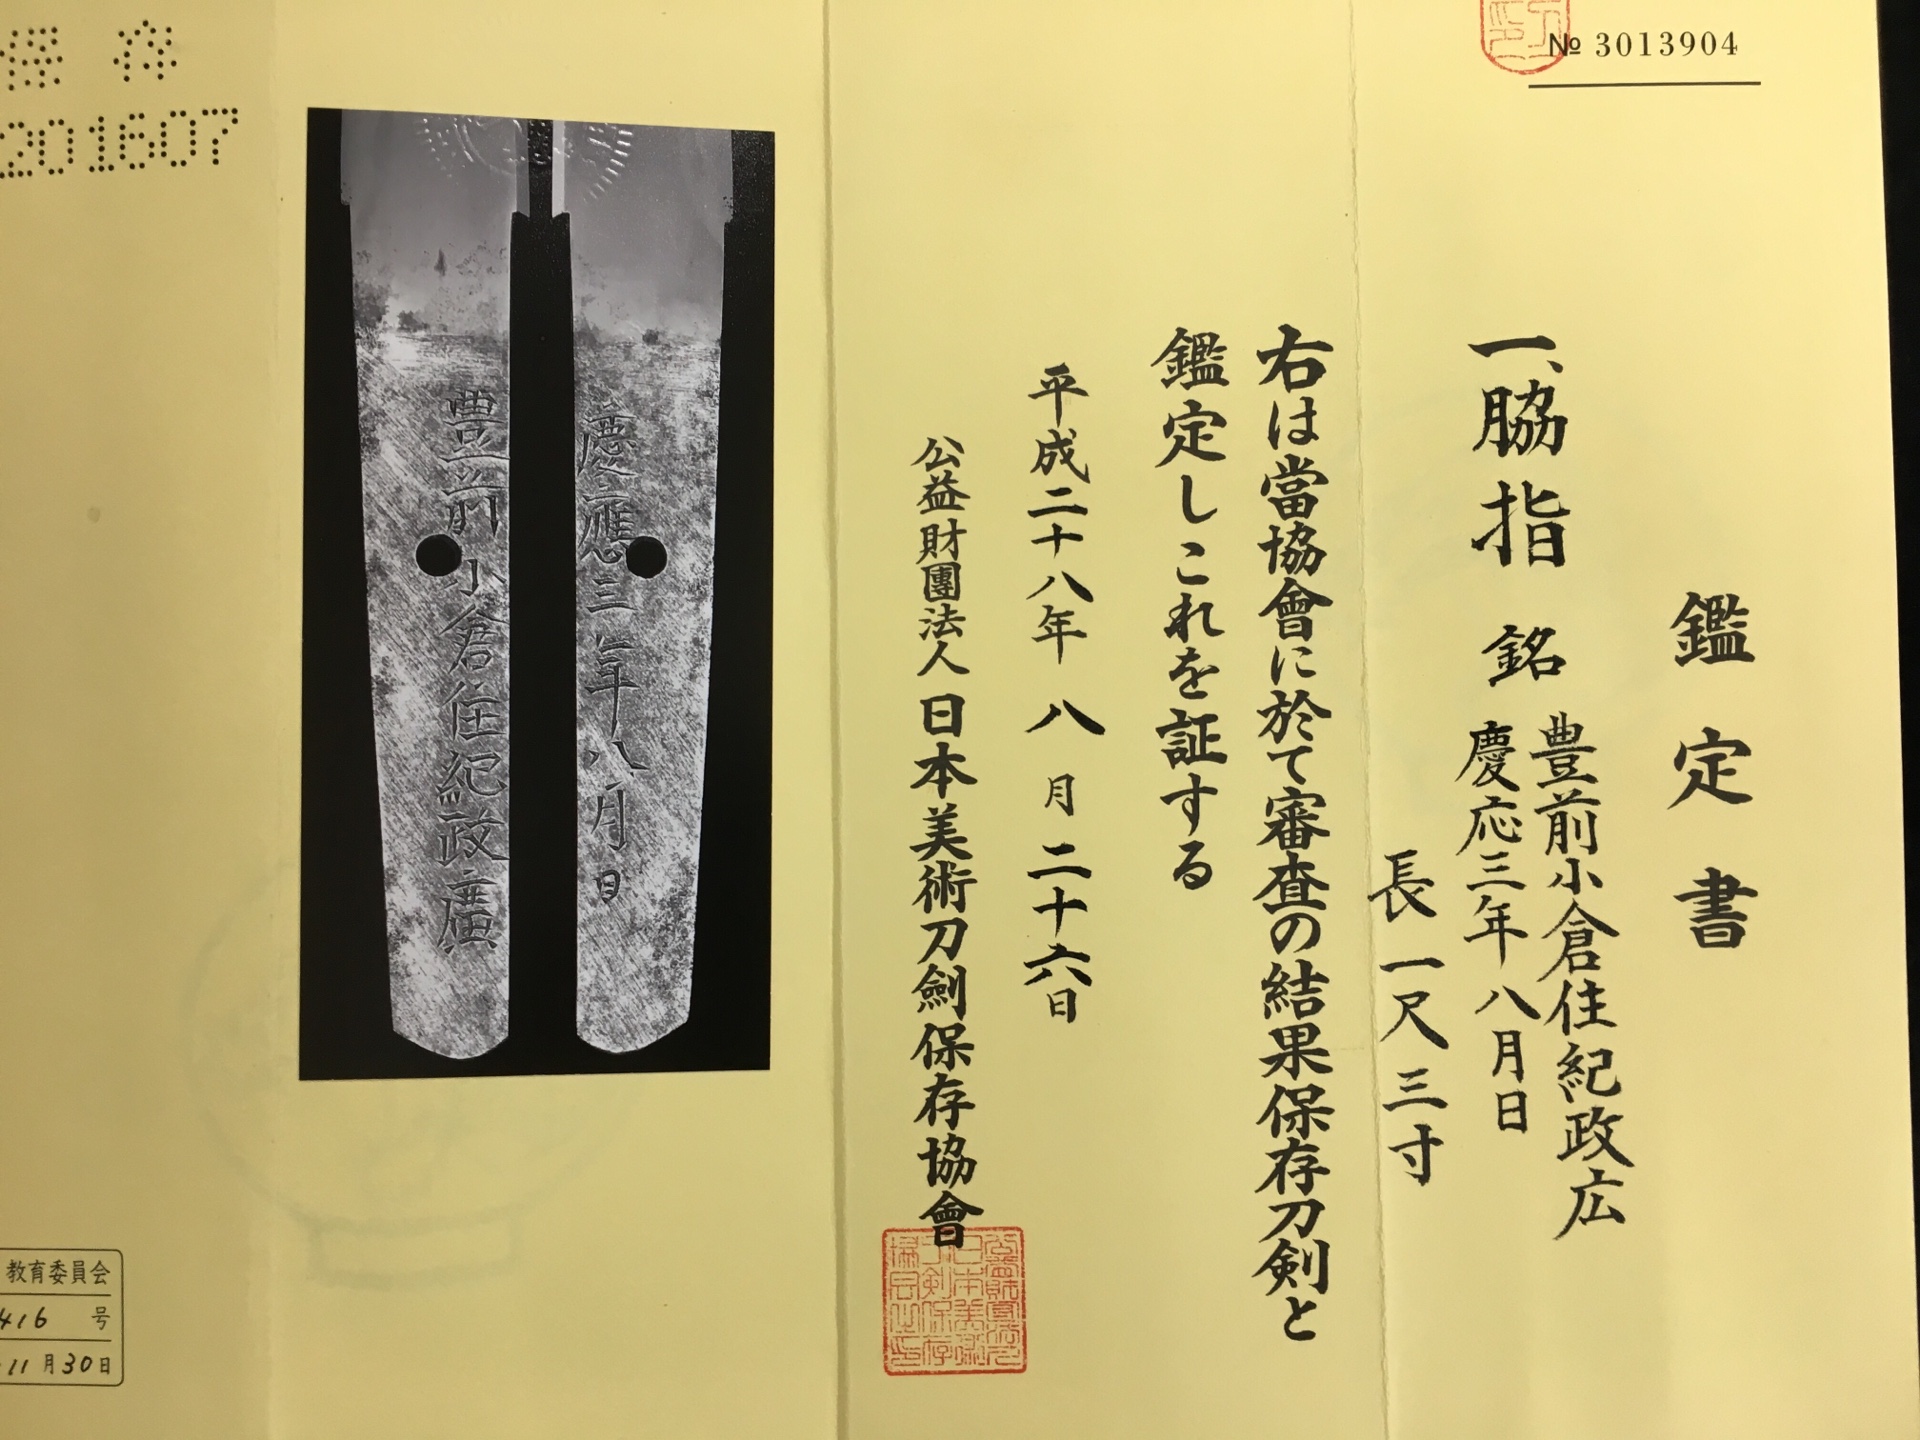 № 3013904
鑑定書
一、脇指 銘 豊前小倉住紀政広
慶応三年八月日
長 一尺三寸
右は當協會に於て審査の結果保存刀剣と
鑑定しこれを証する
平成二十八年 八月二十六日
公益財團法人 日本美術刀劍保存協會
慶應三年八月日
豊前小倉住紀政廣
保存
201607
教育委員会
416 号
11月30日